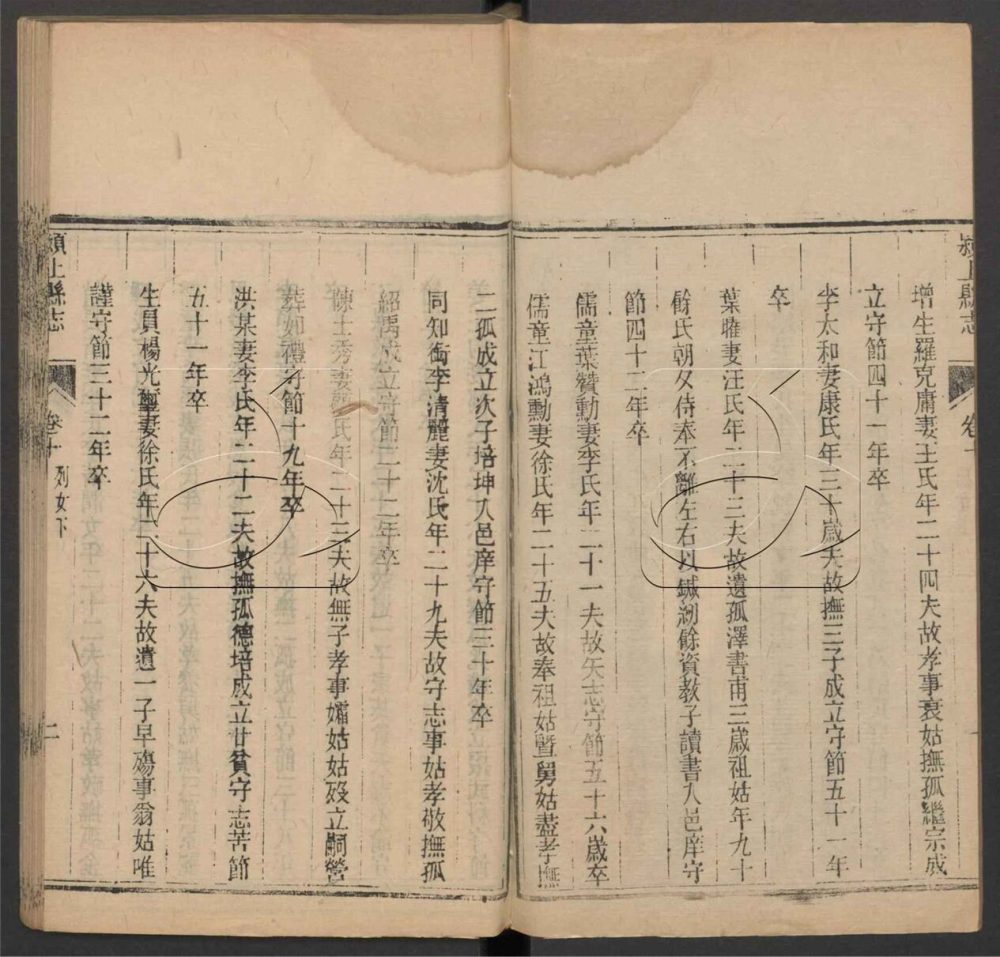 潁上縣志
卷十
增生羅克庸妻王氏年二十四夫故孝事衰姑撫孤繼宗成
立守節四十一年卒
李太和妻康氏年三十歲夫故撫三子成立守節五十一年
卒
葉曜妻汪氏年二十三夫故遺孤澤書甫三歲祖姑年九十
餘氏朝夕侍奉不離左右以鍼紉餘資教子讀書入邑庠守
節四十二年卒
儒童葉贊勳妻李氏年二十一夫故矢志守節五十六歲卒
儒童江鴻勳妻徐氏年二十五夫故奉祖姑暨舅姑盡孝撫
二孤成立次子培坤入邑庠守節三十年卒
同知銜李清麗妻沈氏年二十九夫故守志事姑孝敬撫孤
紹禹成立守節二十二年卒
陳士秀妻 氏年二十三夫故無子孝事孀姑姑歿立嗣營
葬如禮守節十九年卒
洪某妻李氏年二十二夫故撫孤德培成立甘貧守志苦節
五十一年卒
生員楊光璽妻徐氏年二十六夫故遺一子早殤事翁姑唯
謹守節三十二年卒
潁上縣志
卷十
列女下
二